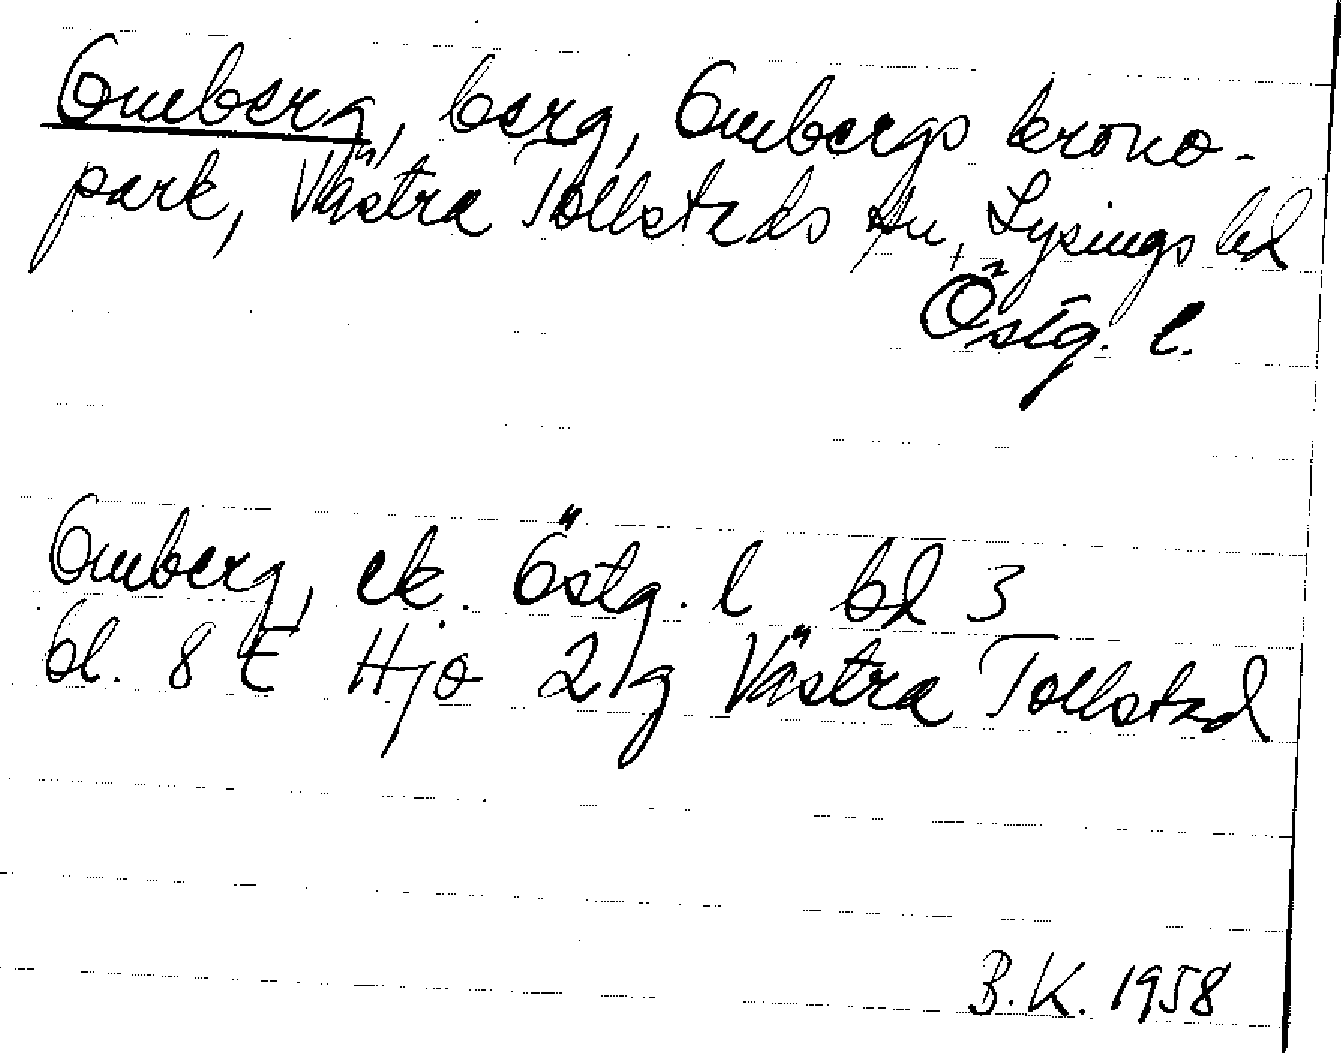 Omberg, berg, Ombergs krono-
park, Västra Tollstads sn, Lysings hd
Östg. l.
Omberg, ek. Östg. l bl 3
bl. 8 E Hjo 2/g Västra Tollstad
B.K. 1958